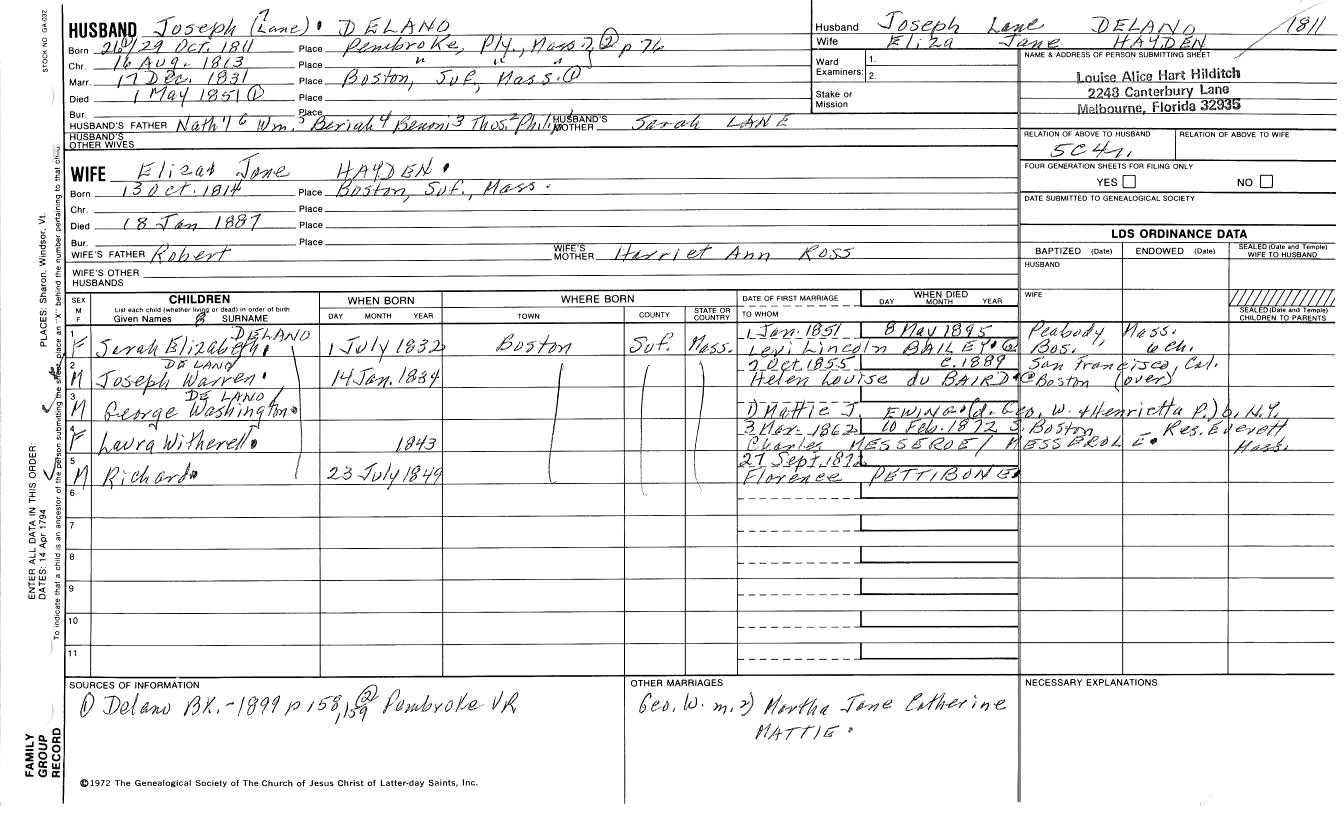 STOCK NO. GA-032
HUSBAND Joseph (Lane)? DELANO
Born 26①/29 Oct. 1811 Place Pembroke, Ply., Mass. ② p 76
Chr. 16 Aug. 1813 Place " " "
Marr. 17 Dec. 1831 Place Boston, Suf, Mass. ①
Died 1 May 1851 ① Place
Bur. Place
HUSBAND'S FATHER Nath'l 6 Wm. 5 Beriah 4 Benoni 3 Thos. 2 Philip HUSBAND'S MOTHER Sarah LANE
HUSBAND'S OTHER WIVES
WIFE Elizat Jane HAYDEN
Born 13 Oct. 1814 Place Boston, Suf., Mass.
Chr. Place
Died 18 Jan 1887 Place
Bur. Place
WIFE'S FATHER Robert WIFE'S MOTHER Harriet Ann ROSS
WIFE'S OTHER HUSBANDS
Husband Joseph Lane DELANO 1811
Wife Eliza Jane HAYDEN
Ward Examiners: 1. 2.
Stake or Mission
NAME & ADDRESS OF PERSON SUBMITTING SHEET
Louise Alice Hart Hilditch
2243 Canterbury Lane
Melbourne, Florida 32935
RELATION OF ABOVE TO HUSBAND RELATION OF ABOVE TO WIFE
5C4r.
FOUR GENERATION SHEETS FOR FILING ONLY
YES NO
DATE SUBMITTED TO GENEALOGICAL SOCIETY
LDS ORDINANCE DATA
BAPTIZED (Date) ENDOWED (Date) SEALED (Date and Temple) WIFE TO HUSBAND
HUSBAND
WIFE
SEALED (Date and Temple) CHILDREN TO PARENTS
SEX M F CHILDREN WHEN BORN WHERE BORN DATE OF FIRST MARRIAGE WHEN DIED
List each child (whether living or dead) in order of birth
Given Names SURNAME DAY MONTH YEAR TOWN COUNTY STATE OR COUNTRY TO WHOM DAY MONTH YEAR
1 DELANO 1 Jan. 1851 8 May 1895 Peabody, Mass.
F Sarah Elizabeth 1 July 1832 Boston Suf. Mass. Levi Lincoln BAILEY Bos. 6 ch.
2 DELANO 2 Oct. 1855 c. 1889 San Francisco, Cal.
M Joseph Warren 14 Jan. 1834 Helen Louise du BAIRD @ Boston (over)
3 DELANO
M George Washington 1) Mattie J. EWING (d. Geo. W. & Henrietta P.) b. N.Y.
4 3 Mar. 1862 10 Feb. 1872 Boston Res. Everett
F Laura Witherell 1843 Charles MESSEROE / MESSEROLE Mass.
5 27 Sept. 1872
M Richard 23 July 1849 Florence PETTIBONE
6
7
8
9
10
11
SOURCES OF INFORMATION
① Delano BK. - 1899 p 158, 159 ② Pembroke VR
OTHER MARRIAGES
Geo. W. m. 2) Martha Jane Catherine
MATTIE
NECESSARY EXPLANATIONS
©1972 The Genealogical Society of The Church of Jesus Christ of Latter-day Saints, Inc.
FAMILY GROUP RECORD
ENTER ALL DATA IN THIS ORDER:
DATES: 14 Apr 1794
PLACES: Sharon, Windsor, Vt.
To indicate that a child is an ancestor of the person submitting the sheet, place an "X" behind the number pertaining to that child.